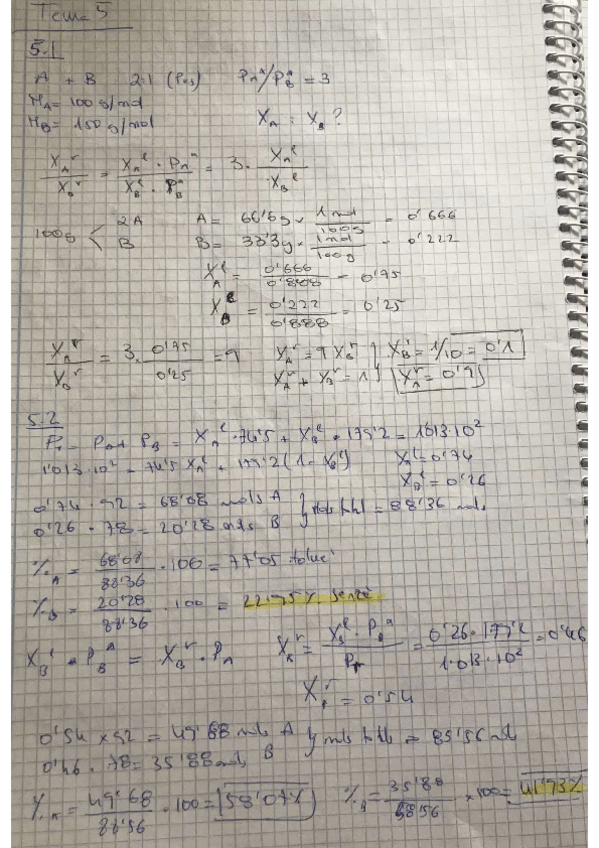 Tema 5
5.1
A + B 2:1 (pes) PA*/PB* = 3
MA = 100 g/mol
MB = 150 g/mol XA : XB ?
XA^v / XB^v = XA^l · PA* / XB^l · PB* = 3 · XA^l / XB^l
100g < 2A A = 66'6g × 1 mol / 100g = 0'666
B B = 33'3g × 1 mol / 100g = 0'222
XA^l = 0'666 / 0'888 = 0'75
XB^l = 0'222 / 0'888 = 0'25
XA^v / XB^v = 3 · 0'75 / 0'25 = 9 XA^v = 9 XB^v } XB^v = 1/10 = 0'1
XA^v + XB^v = 1 XA^v = 0'9
5.2
PT = PA + PB = XA^l · 74'5 + XB^l · 177'2 = 1'013·10²
1'013·10² = 74'5 XA^l + 177'2 (1 - XA^l) XA^l = 0'74
XB^l = 0'26
0'74 · 92 = 68'08 mols A } mols total = 88'36 mols
0'26 · 78 = 20'28 mols B
%A = 68'08 / 88'36 · 100 = 77'05 toluè
%B = 20'28 / 88'36 · 100 = 22'95% benzè
XB^l · PB* = XB^v · PT XB^v = XB^l · PB* / PT = 0'26 · 177'2 / 1'013·10² = 0'46
XA^v = 0'54
0'54 × 92 = 49'68 mols A } mols totals = 85'56 mol
0'46 · 78 = 35'88 mols B
%A = 49'68 / 88'56 · 100 = 58'07% %B = 35'88 / 88'56 × 100 = 41'93%